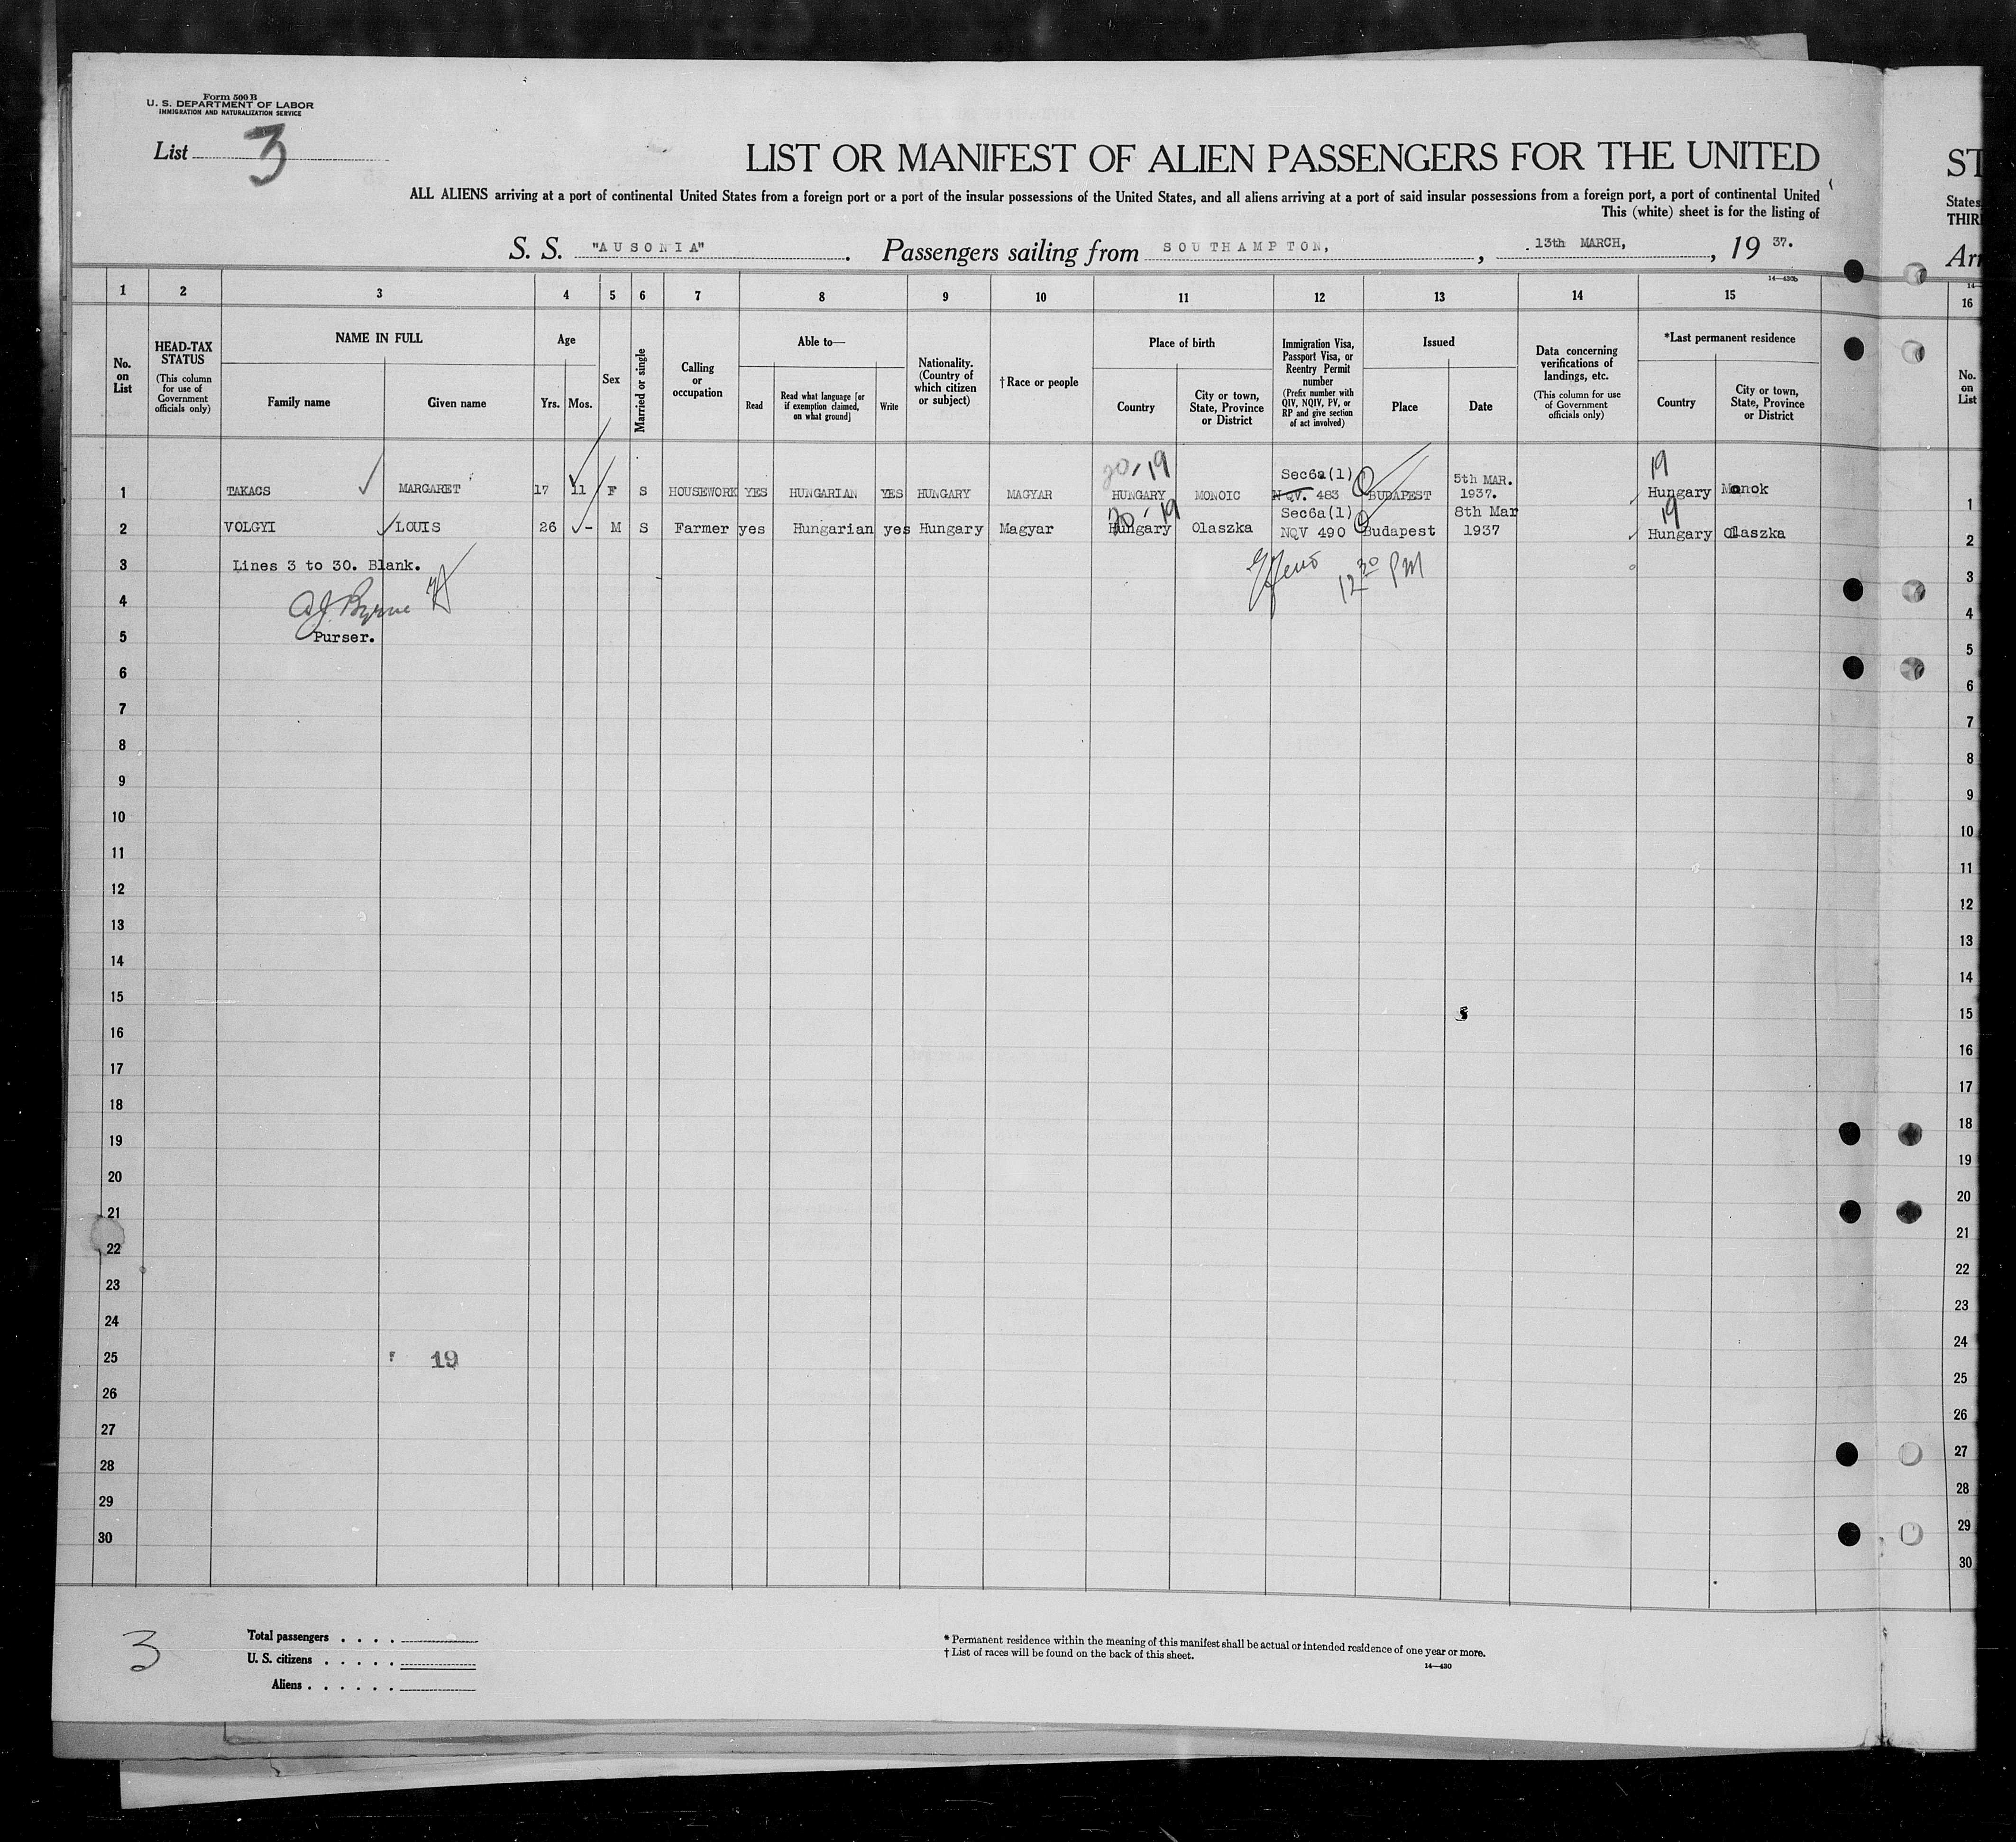 Form 500 B
U. S. DEPARTMENT OF LABOR
IMMIGRATION AND NATURALIZATION SERVICE
List 3
LIST OR MANIFEST OF ALIEN PASSENGERS FOR THE UNITED
ST
ALL ALIENS arriving at a port of continental United States from a foreign port or a port of the insular possessions of the United States, and all aliens arriving at a port of said insular possessions from a foreign port, a port of continental United
States
This (white) sheet is for the listing of
THIR
S. S. "AUSONIA". Passengers sailing from SOUTHAMPTON, , 13th MARCH, , 19 37.
Arr
14—430b
1 2 3 4 5 6 7 8 9 10 11 12 13 14 15 16
No. on List
HEAD-TAX STATUS
(This column for use of Government officials only)
NAME IN FULL
Family name
Given name
Age
Yrs. Mos.
Sex
Married or single
Calling or occupation
Able to—
Read
Read what language [or if exemption claimed, on what ground]
Write
Nationality. (Country of which citizen or subject)
†Race or people
Place of birth
Country
City or town, State, Province or District
Immigration Visa, Passport Visa, or Reentry Permit number
(Prefix number with QIV, NQIV, PV, or RP and give section of act involved)
Issued
Place
Date
Data concerning verifications of landings, etc.
(This column for use of Government officials only)
*Last permanent residence
Country
City or town, State, Province or District
No. on List
20-19 Sec6a(1) 5th MAR. 19
1 TAKACS MARGARET 17 11 F S HOUSEWORK YES HUNGARIAN YES HUNGARY MAGYAR HUNGARY MONOIC NQV. 483 BUDAPEST 1937. Hungary Monok 1
20-19 Sec6a(1) 8th Mar 19
2 VOLGYI LOUIS 26 - M S Farmer yes Hungarian yes Hungary Magyar Hungary Olaszka NQV 490 Budapest 1937 Hungary Olaszka 2
3 Lines 3 to 30. Blank. 12 30 PM 3
4 AJ Byrne 4
5 Purser. 5
6 6
7 7
8 8
9 9
10 10
11 11
12 12
13 13
14 14
15 15
16 16
17 17
18 18
19 19
20 20
21 21
22 22
23 23
24 24
25 19 25
26 26
27 27
28 28
29 29
30 30
3
Total passengers . . . .
U. S. citizens . . . . .
Aliens . . . . . .
* Permanent residence within the meaning of this manifest shall be actual or intended residence of one year or more.
† List of races will be found on the back of this sheet.
14—430